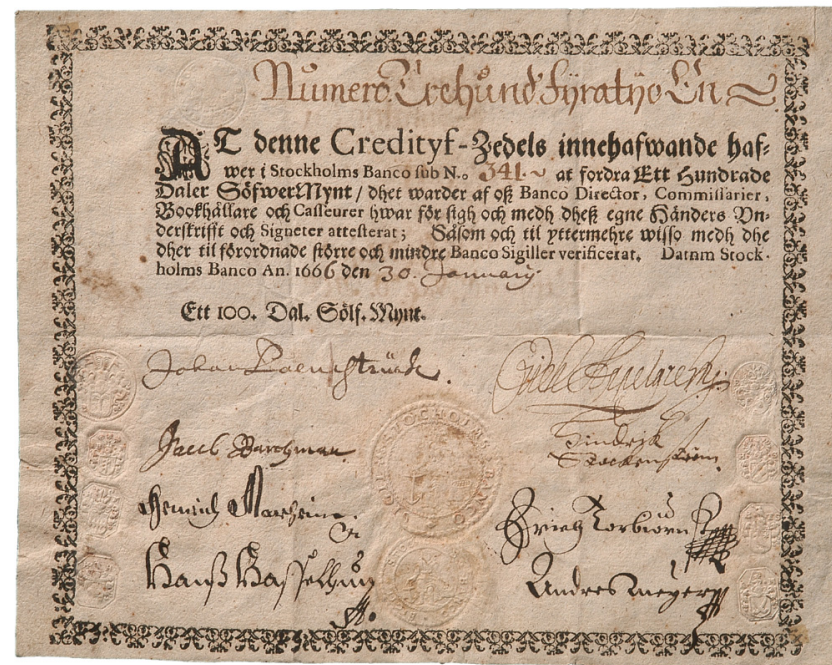 Numero. Trehund. fyratijo En.
AT denne Credityf-Zedels innehafwande haf-
wer i Stockholms Banco sub N.o 341. at fordra Ett Hundrade
Daler SöfwerMynt / dhet warder af oß Banco Director, Commissarier,
Bookhållare och Casseurer hwar för sigh och medh dheß egne Händers Vn-
derskrifft och Signeter attesterat; Såsom och til yttermehre wisso medh dhe
dher til förordnade större och mindre Banco Sigiller verificerat. Datum Stock-
holms Banco An. 1666 den 30. January.
Ett 100. Dal. Sölf. Mynt.
Johan Palmstruch.
Jacob Barchman.
Hindrich
Hanß Hasselhuun
Erich Torbiörn
Andres Meyer
STOCHOLMS BANCO